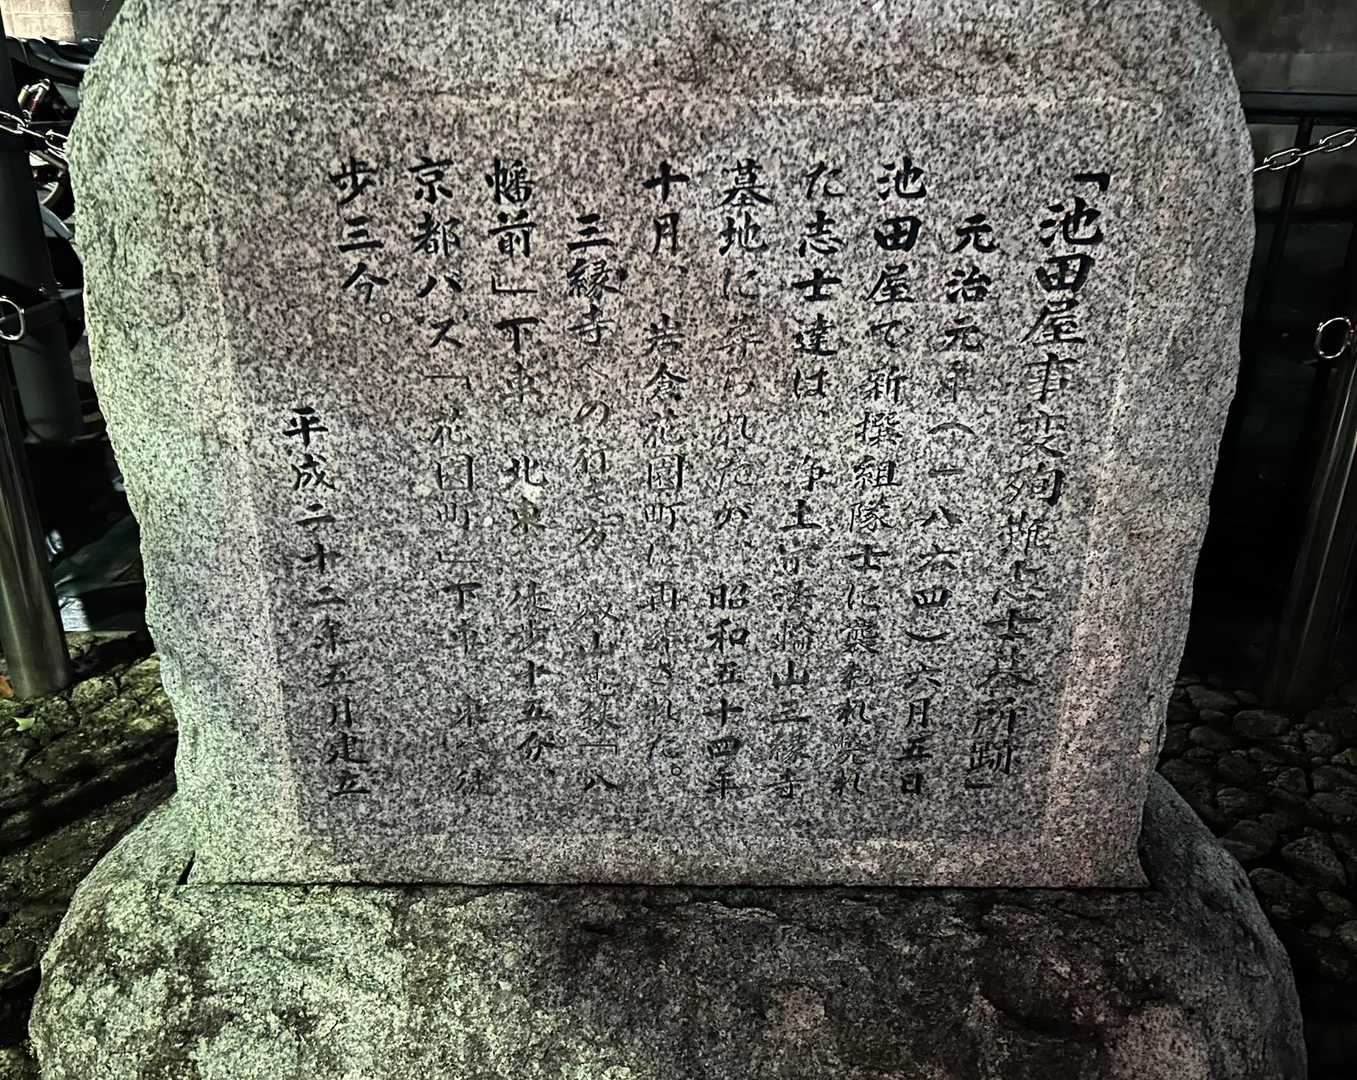 「池田屋事変殉難志士墓所跡」
元治元年(一八六四)六月五日
池田屋で新撰組隊士に襲われ斃れ
た志士達は、浄土宗法輪山三縁寺
墓地に葬られたが、昭和五十四年
十月、岩倉花園町に再葬された。
三縁寺への行き方、叡山電鉄「八
幡前」下車 北東へ徒歩十五分、
京都バス「花園町」下車 東へ徒
歩三分。
平成二十二年五月建立